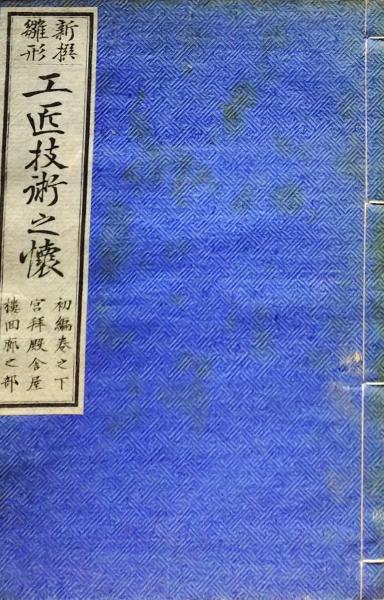 新撰
雛形
工匠技術之懐
初編巻之下
宮拝殿舎屋
楼回廊之部